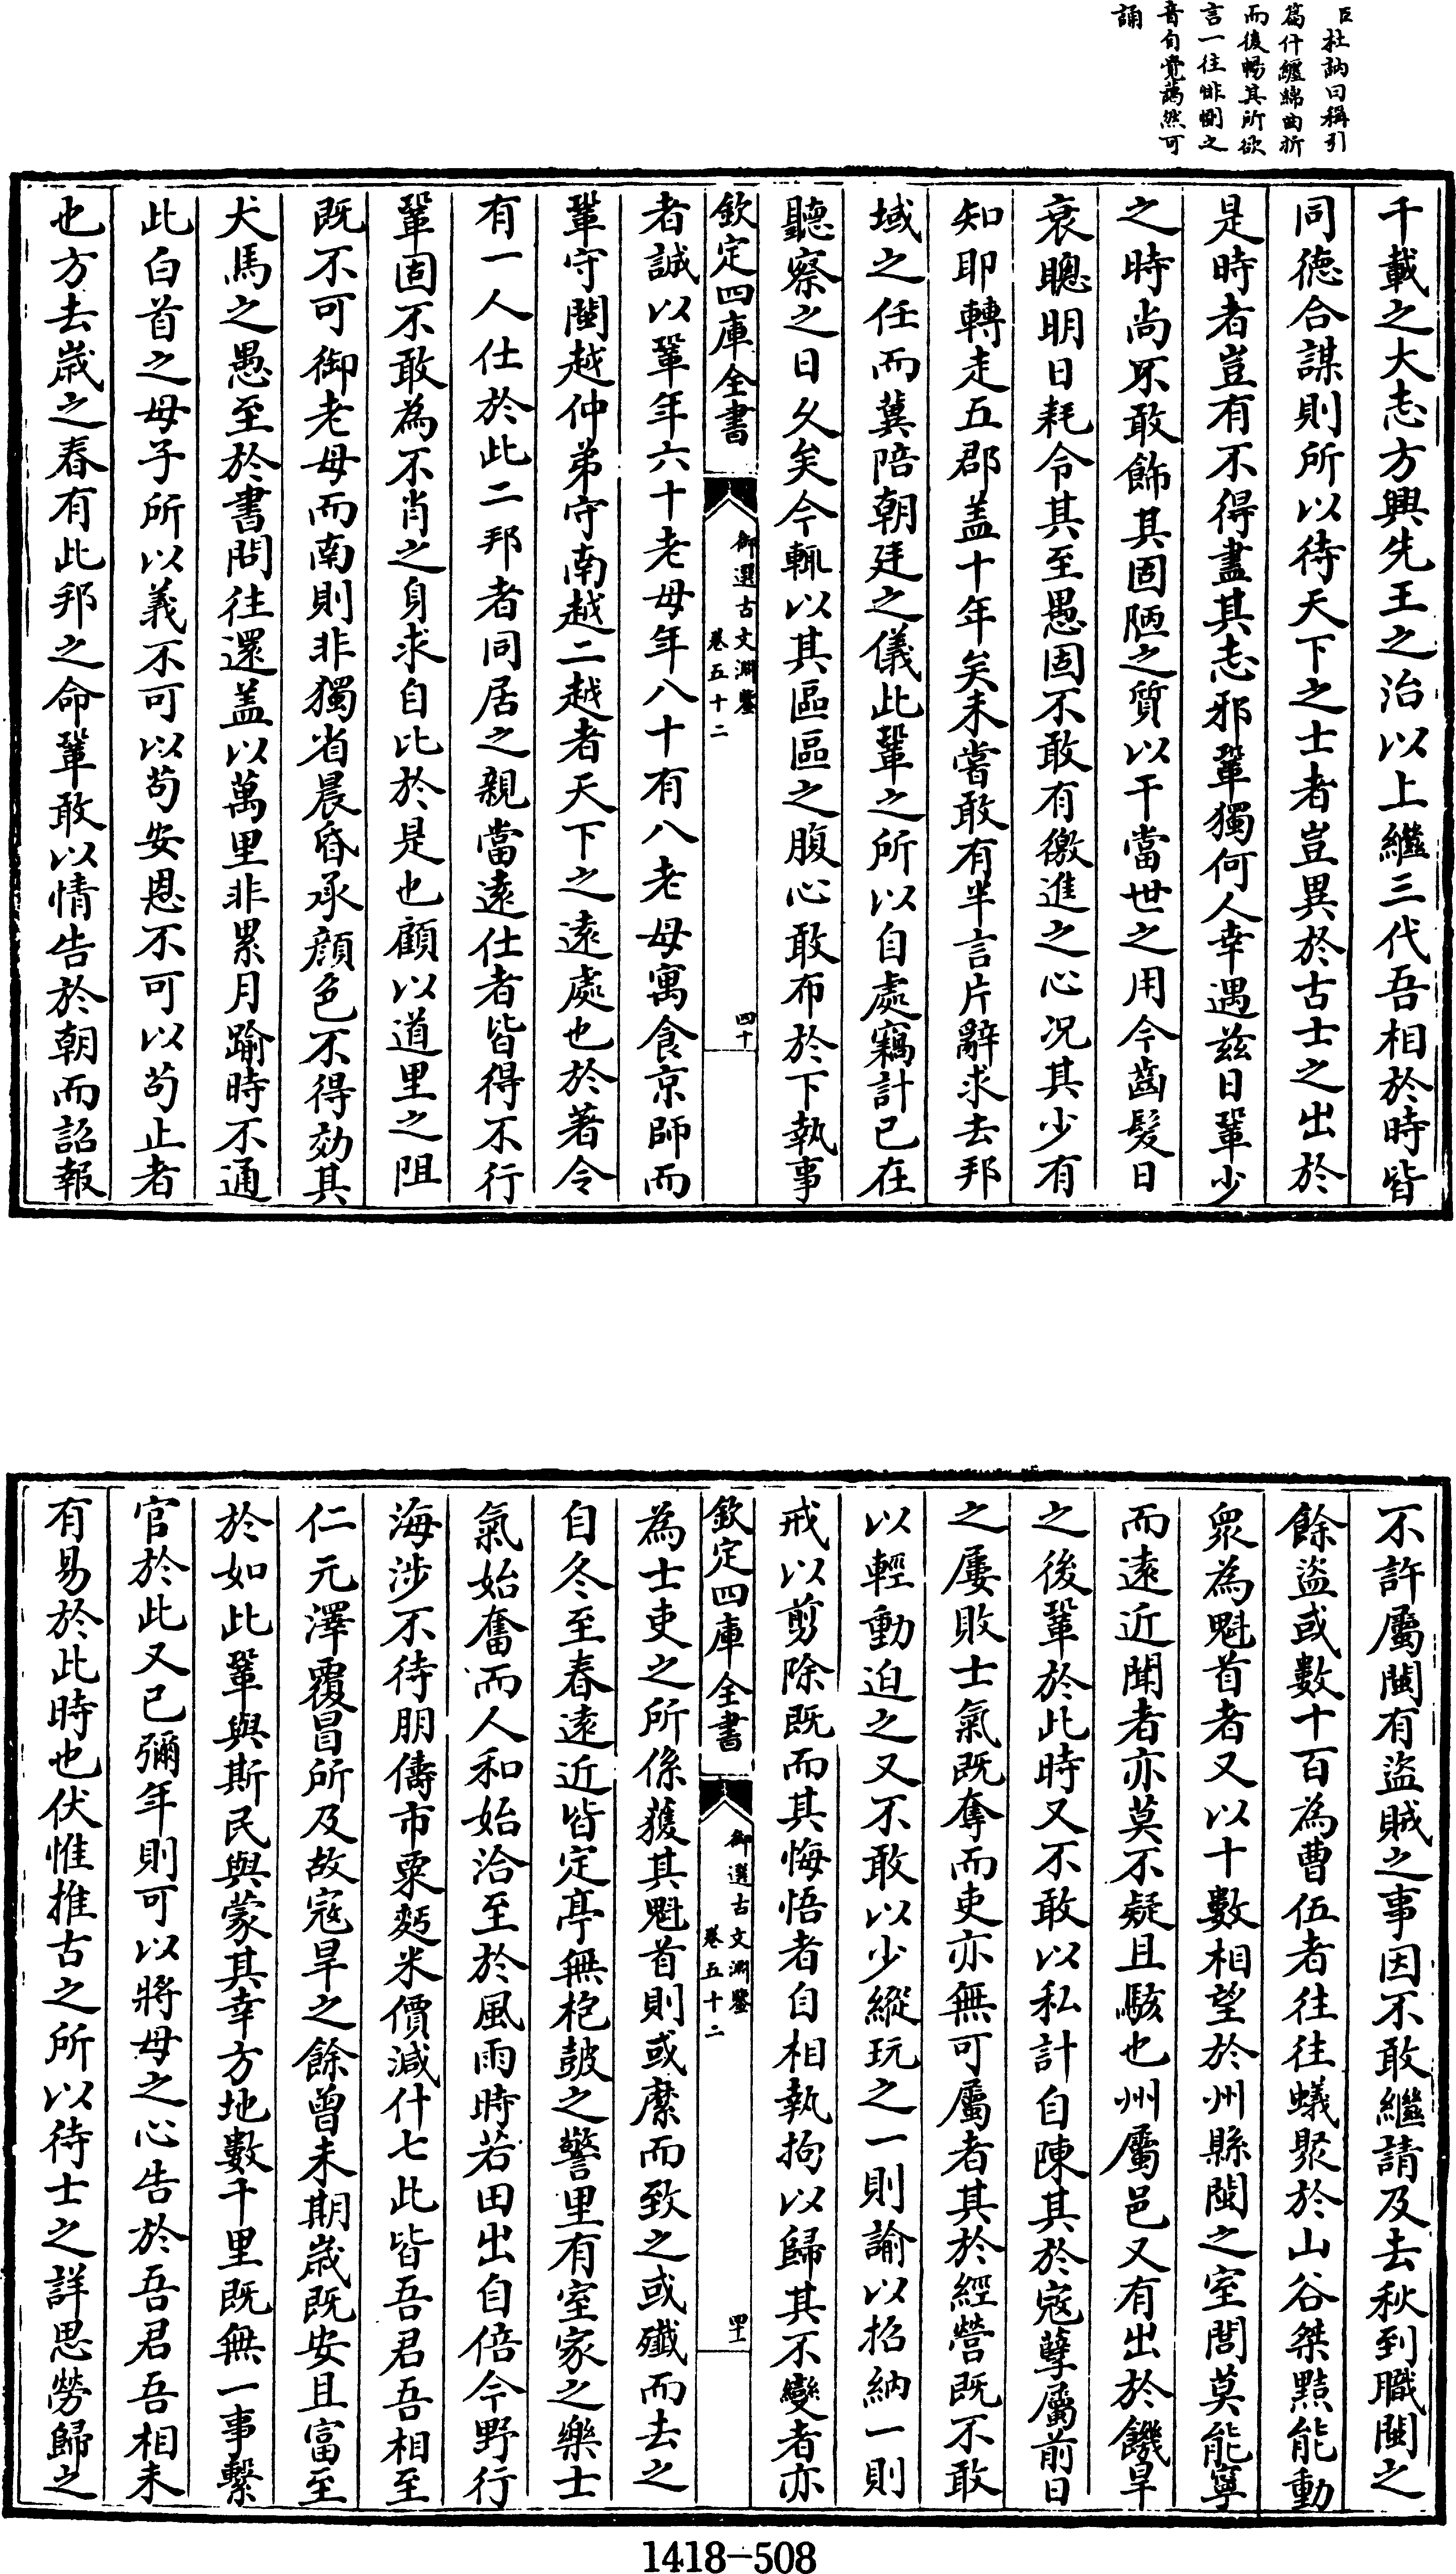 臣杜訥曰稱引
篇什纏綿曲折
而後暢其所欲
言一往悱惻之
音自覺藹然可
誦
千載之大志方興先王之治以上繼三代吾相於時皆
同德合謀則所以待天下之士者豈異於古士之出於
是時者豈有不得盡其志邪鞏獨何人幸遇兹日鞏少
之時尚不敢飾其固陋之質以干當世之用今齒髮日
衰聰明日耗令其至愚固不敢有徼進之心况其少有
知耶轉走五郡盖十年矣未嘗敢有半言片辭求去邦
域之任而冀陪朝廷之儀此鞏之所以自處竊計已在
聽察之日久矣今輒以其區區之腹心敢布於下執事
欽定四庫全書
御選古文淵鑒
卷五十二
四十
者誠以鞏年六十老母年八十有八老母寓食京師而
鞏守閩越仲弟守南越二越者天下之遠處也於著令
有一人仕於此二邦者同居之親當遠仕者皆得不行
鞏固不敢為不肖之身求自比於是也顧以道里之阻
既不可御老母而南則非獨省晨昏承顔色不得効其
犬馬之愚至於書問往還盖以萬里非累月踰時不通
此白首之母子所以義不可以苟安恩不可以苟止者
也方去嵗之春有此邦之命鞏敢以情告於朝而詔報
不許屬閩有盜賊之事因不敢繼請及去秋到職閩之
餘盜或數十百為曹伍者往往蟻聚於山谷桀黠能動
衆為魁首者又以十數相望於州縣閩之室閭莫能寧
而遠近聞者亦莫不疑且駭也州屬邑又有出於饑旱
之後鞏於此時又不敢以私計自陳其於寇孽屬前日
之屢敗士氣既奪而吏亦無可屬者其於經營既不敢
以輕動迫之又不敢以少縱玩之一則諭以招納一則
戒以剪除既而其悔悟者自相執拘以歸其不變者亦
欽定四庫全書
御選古文淵鑒
卷五十二
四十一
為士吏之所係獲其魁首則或縻而致之或殲而去之
自冬至春遠近皆定亭無枹鼓之警里有室家之樂士
氣始奮而人和始洽至於風雨時若田出自倍今野行
海涉不待朋儔市粟麫米價減什七此皆吾君吾相至
仁元澤覆冒所及故寇旱之餘曾未期嵗既安且富至
於如此鞏與斯民與蒙其幸方地數千里既無一事繫
官於此又已彌年則可以將母之心告於吾君吾相未
有易於此時也伏惟推古之所以待士之詳思勞歸之
1418-508